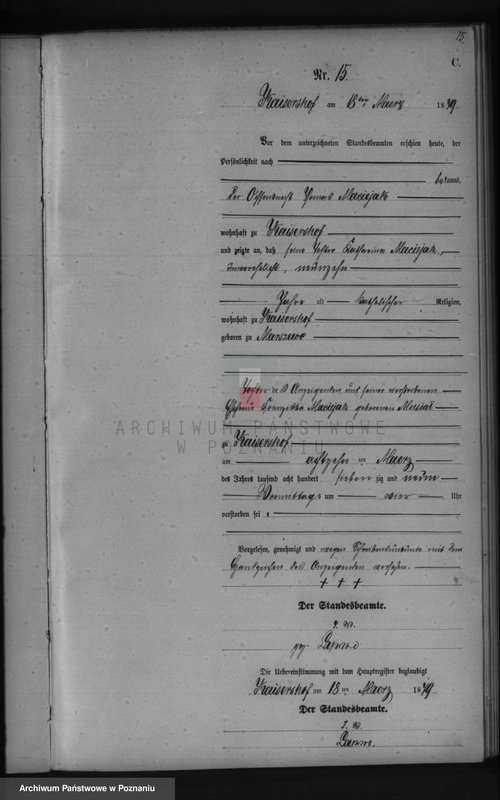 15.
C.
Nr. 15.
Kaisershof am 18ten Maerz 1879
Vor dem unterzeichneten Standesbeamten erschien heute, der
Persönlichkeit nach
bekannt,
der Ochsenknecht Maciejak
wohnhaft zu Kaisershof
und zeigte an, daß seine Tochter Katharina Maciejak,
unverehelicht, neunzehn
Jahre alt katholischer Religion,
wohnhaft zu Kaisershof
geboren zu Marszewo
Tochter des Anzeigenden und seiner verstorbenen
Ehefrau Franziska Maciejak geborenen Musial
ARCHIWUM PAŃSTWOWE
W POZNANIU
zu Kaisershof
am achtzehnten Maerz
des Jahres tausend acht hundert siebenzig und neun
Vormittags um vier Uhr
verstorben sei.
Vorgelesen, genehmigt und wegen Schreibensunkunde mit dem
Handzeichen des Anzeigenden versehen.
+ + +
Der Standesbeamte.
I. V.
gez.
Die Uebereinstimmung mit dem Hauptregister beglaubigt
Kaisershof am 18ten Maerz 1879
Der Standesbeamte.
I. V.
Archiwum Państwowe w Poznaniu